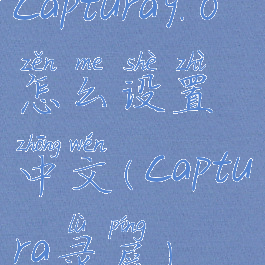 Captura9.0
zěn me shè zhì
怎么设置
zhōng wén
中文(Captu
lù píng
ra录屏)